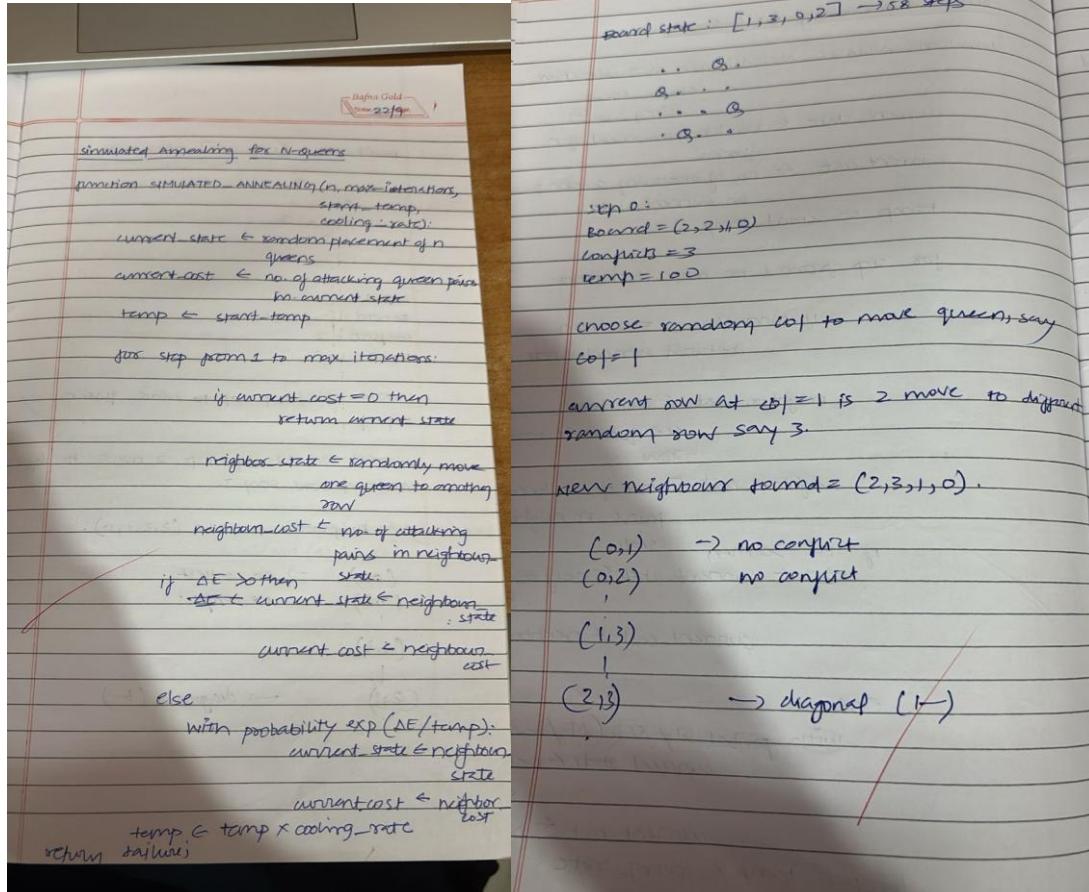 Bafna Gold
Date: 22/9
simulated Annealing for N-Queens
function SIMULATED_ANNEALING(n, max-interations,
start_temp,
cooling-rate):
current_state ← random placement of n
queens
current_cost ← no. of attacking queen pairs
in current state
temp ← start_temp
for step from 1 to max iterations:
if current_cost = 0 then
return current state
neighbor_state ← randomly move
one queen to another
row
neighbour_cost ← no. of attacking
pairs in neighbour
state.
if ΔE >0 then
current_state ← neighbour_
state
current_cost ← neighbour_
cost
else
with probability exp(ΔE/temp):
current_state ← neighbour_
state
current_cost ← neighbor_
cost
temp ← temp x cooling_rate
return failure;
Board state: [1,3,0,2] → 58 steps
. . Q .
Q . . .
. . . Q
. Q . .
step 0:
Board = (2,2,1,0)
conflicts = 3
temp = 100
choose random col to move queen, say
col = 1
current row at col = 1 is 2 move to different
random row say 3.
New neighbour found = (2,3,1,0).
(0,1) → no conflict
(0,2) no conflict
(1,3)
(2,3) → diagonal (1—)